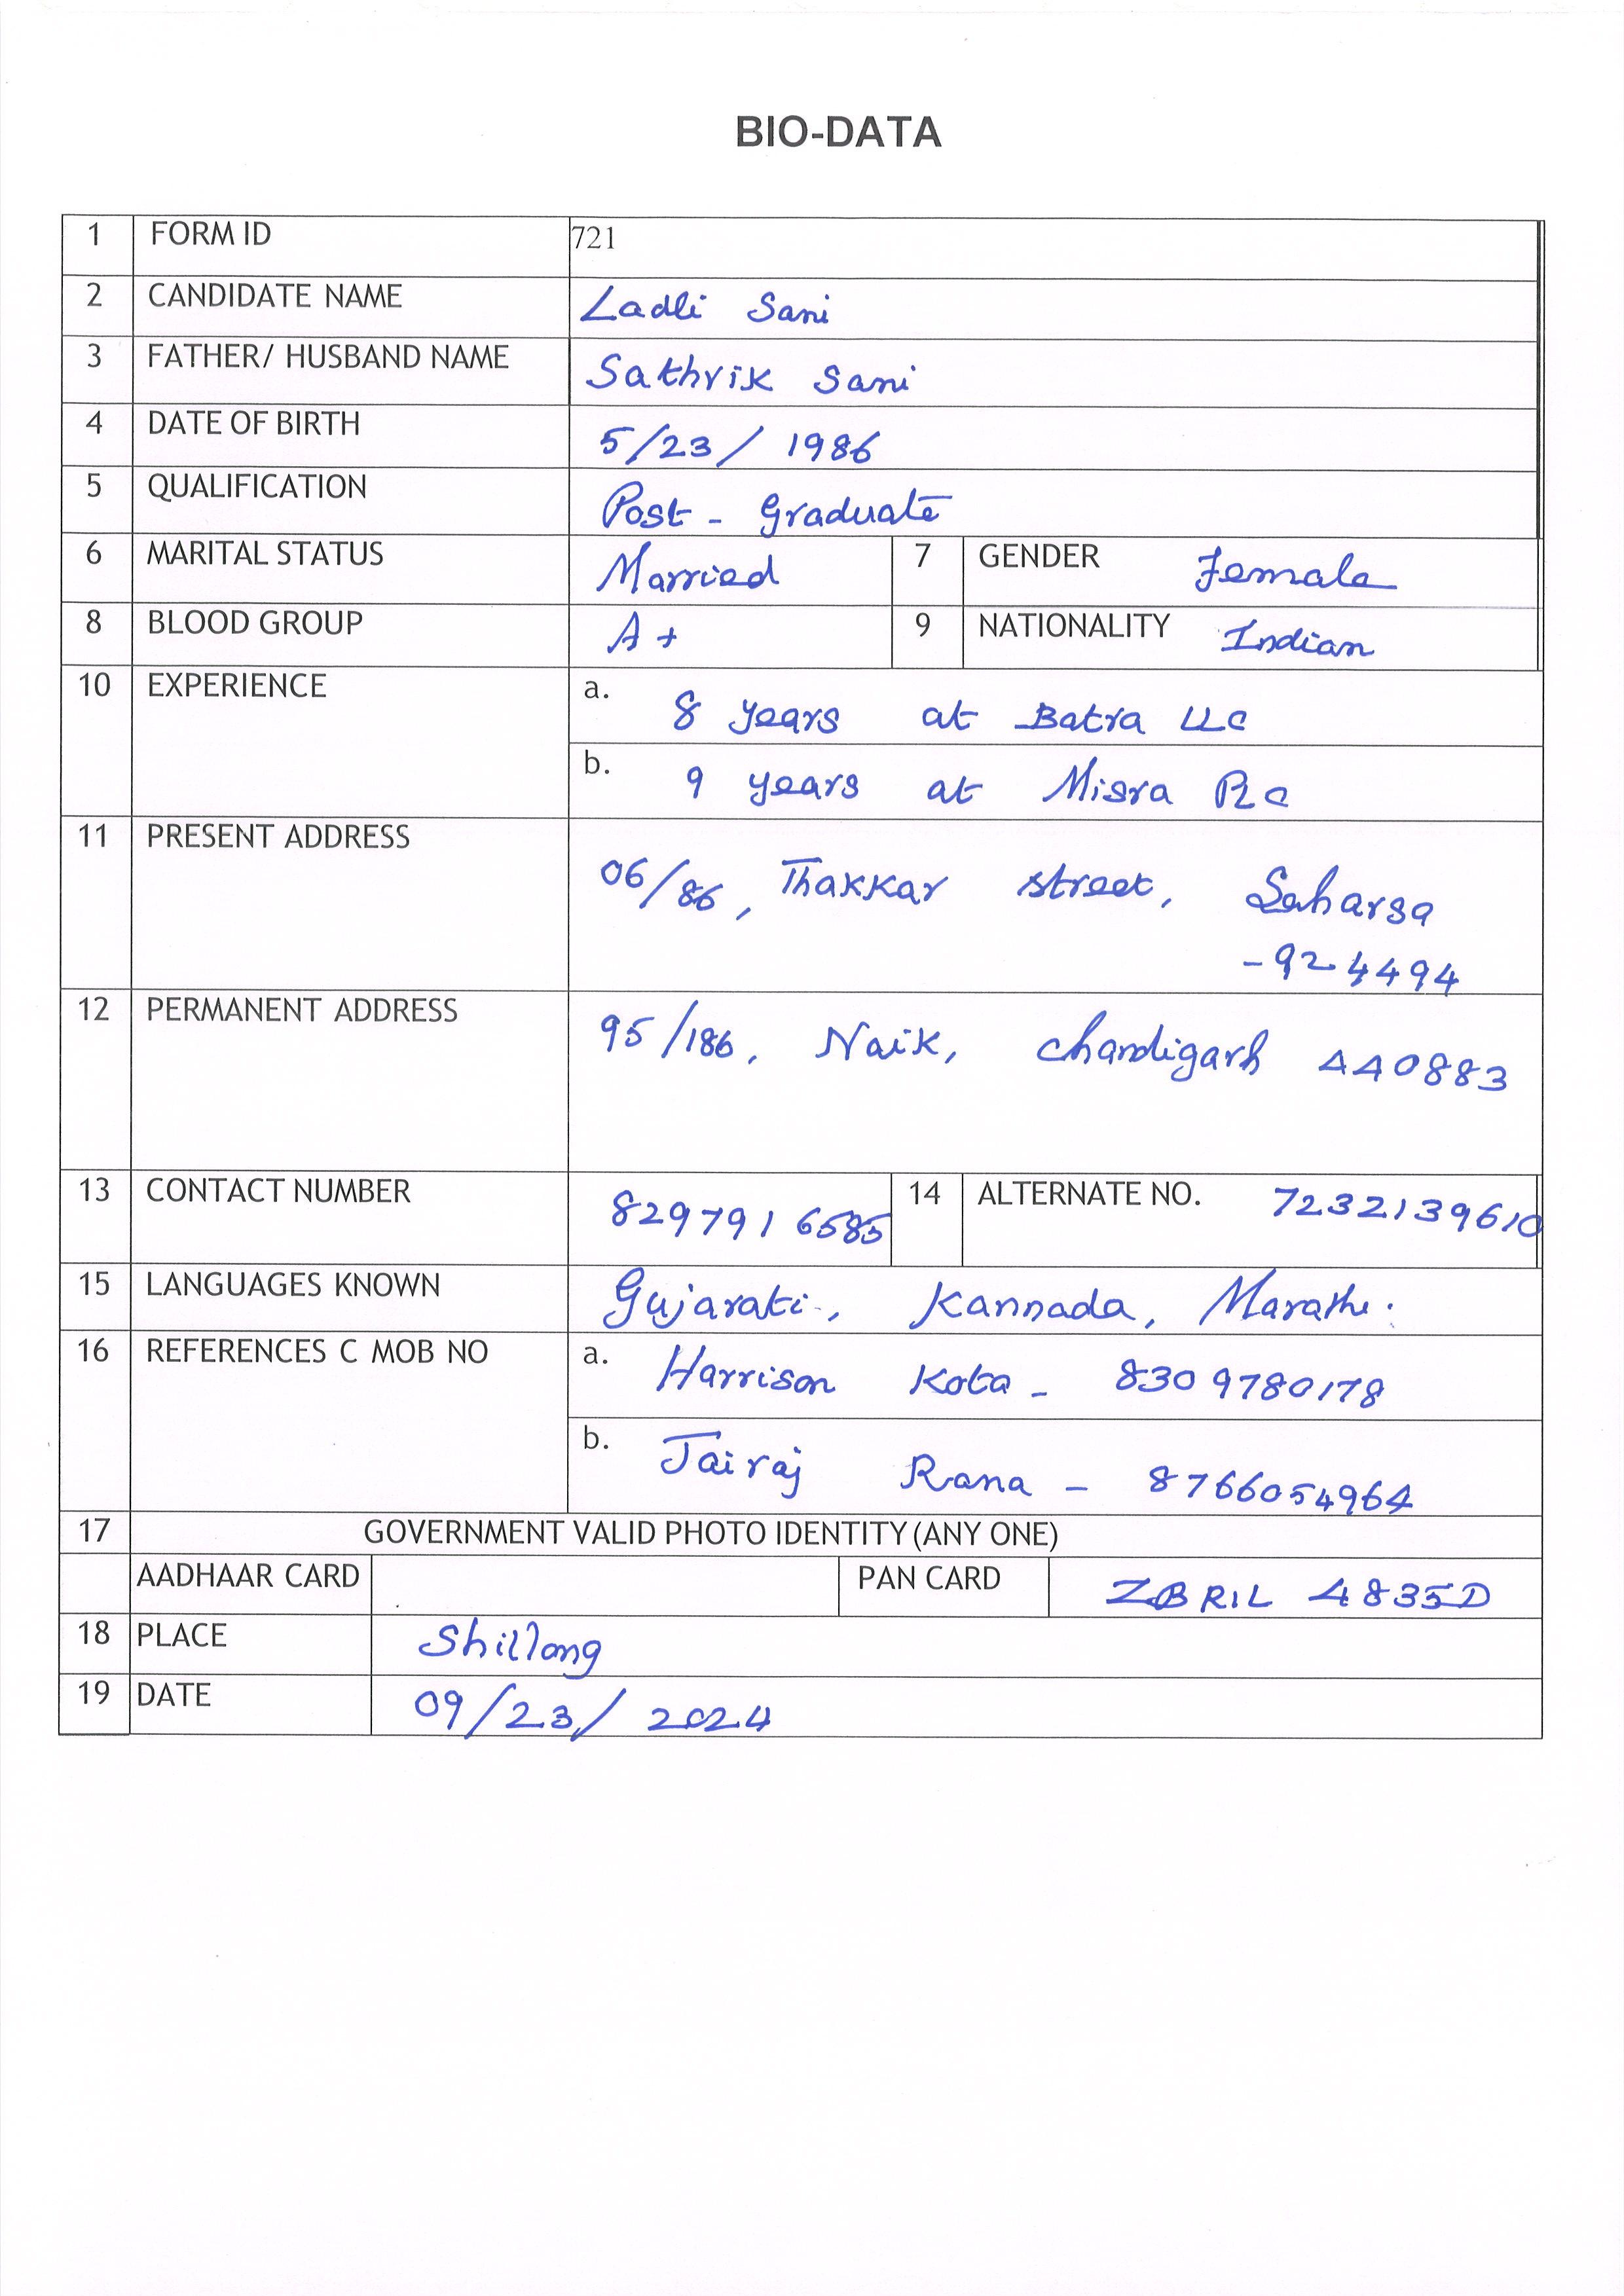 BIO-DATA
1 FORM ID 721
2 CANDIDATE NAME Ladli Sani
3 FATHER/ HUSBAND NAME Sathvik Sani
4 DATE OF BIRTH 5/23/ 1986
5 QUALIFICATION Post - Graduate
6 MARITAL STATUS Married 7 GENDER Female
8 BLOOD GROUP A+ 9 NATIONALITY Indian
10 EXPERIENCE a. 8 years at Batra LLC
b. 9 years at Misra PLC
11 PRESENT ADDRESS 06/86, Thakkar street, Saharsa
-924494
12 PERMANENT ADDRESS 95/186, Naik, Chandigarh 440883
13 CONTACT NUMBER 8297916585 14 ALTERNATE NO. 7232139610
15 LANGUAGES KNOWN Gujarati, Kannada, Marathi.
16 REFERENCES C MOB NO a. Harrison Kota - 8309780178
b. Jairaj Rana - 8766054964
17 GOVERNMENT VALID PHOTO IDENTITY (ANY ONE)
AADHAAR CARD PAN CARD ZBRIL 4835D
18 PLACE Shillong
19 DATE 09/23/ 2024